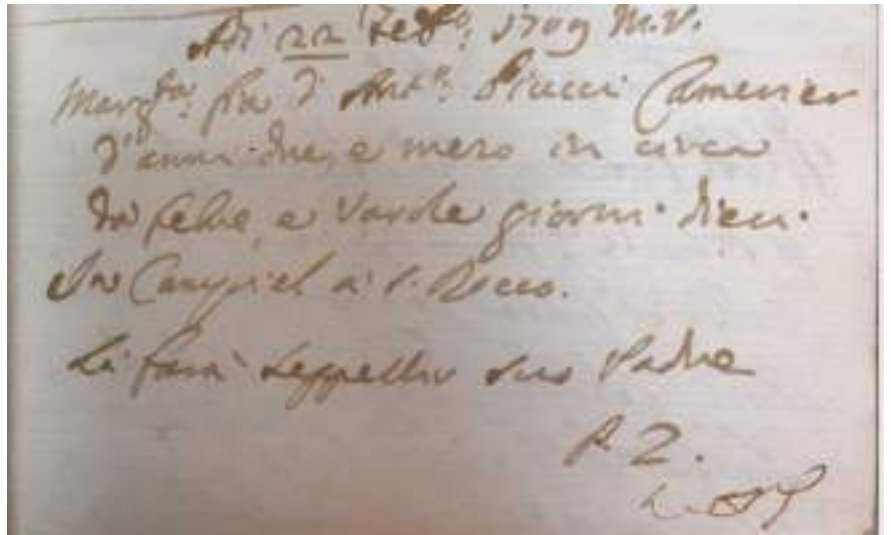 Adi 22 Feb.o 1709 M.V.
Marg.ta fia d Ant.o Piucci Camerier
d'anni due, e mezo in circa
da febre, e Varole giorni dieci
In Campiel a S. Rocco.
Lo farà seppellir suo Padre